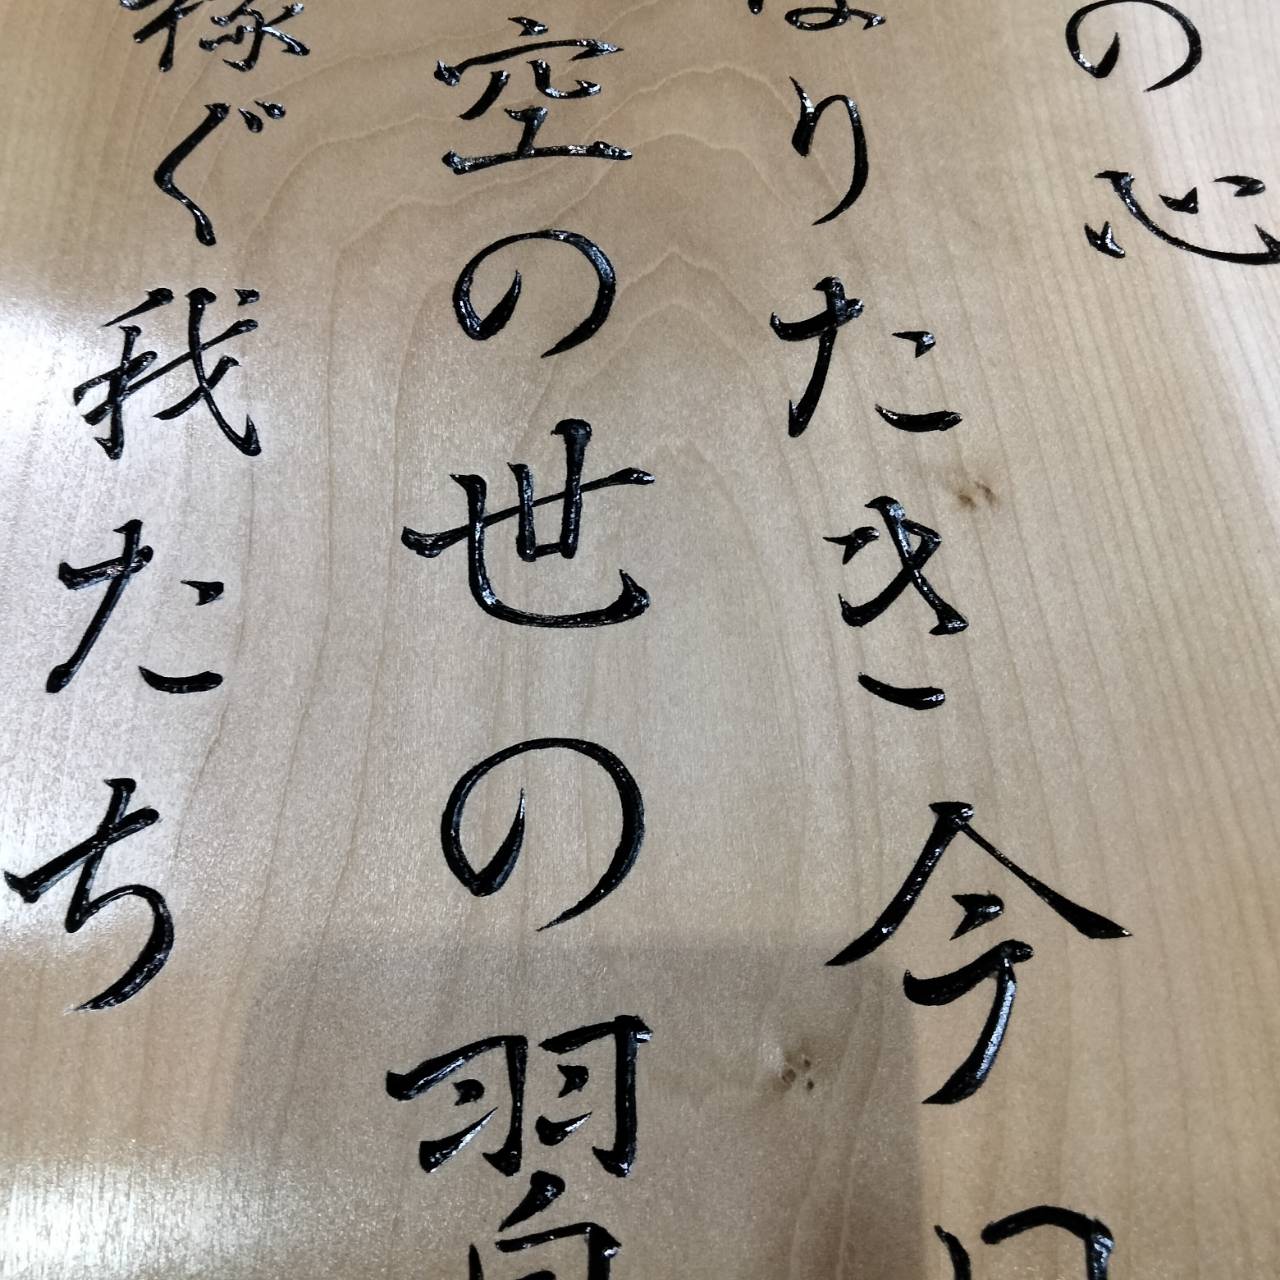 の心
なりたき今日
空の世の習
稼ぐ我たち